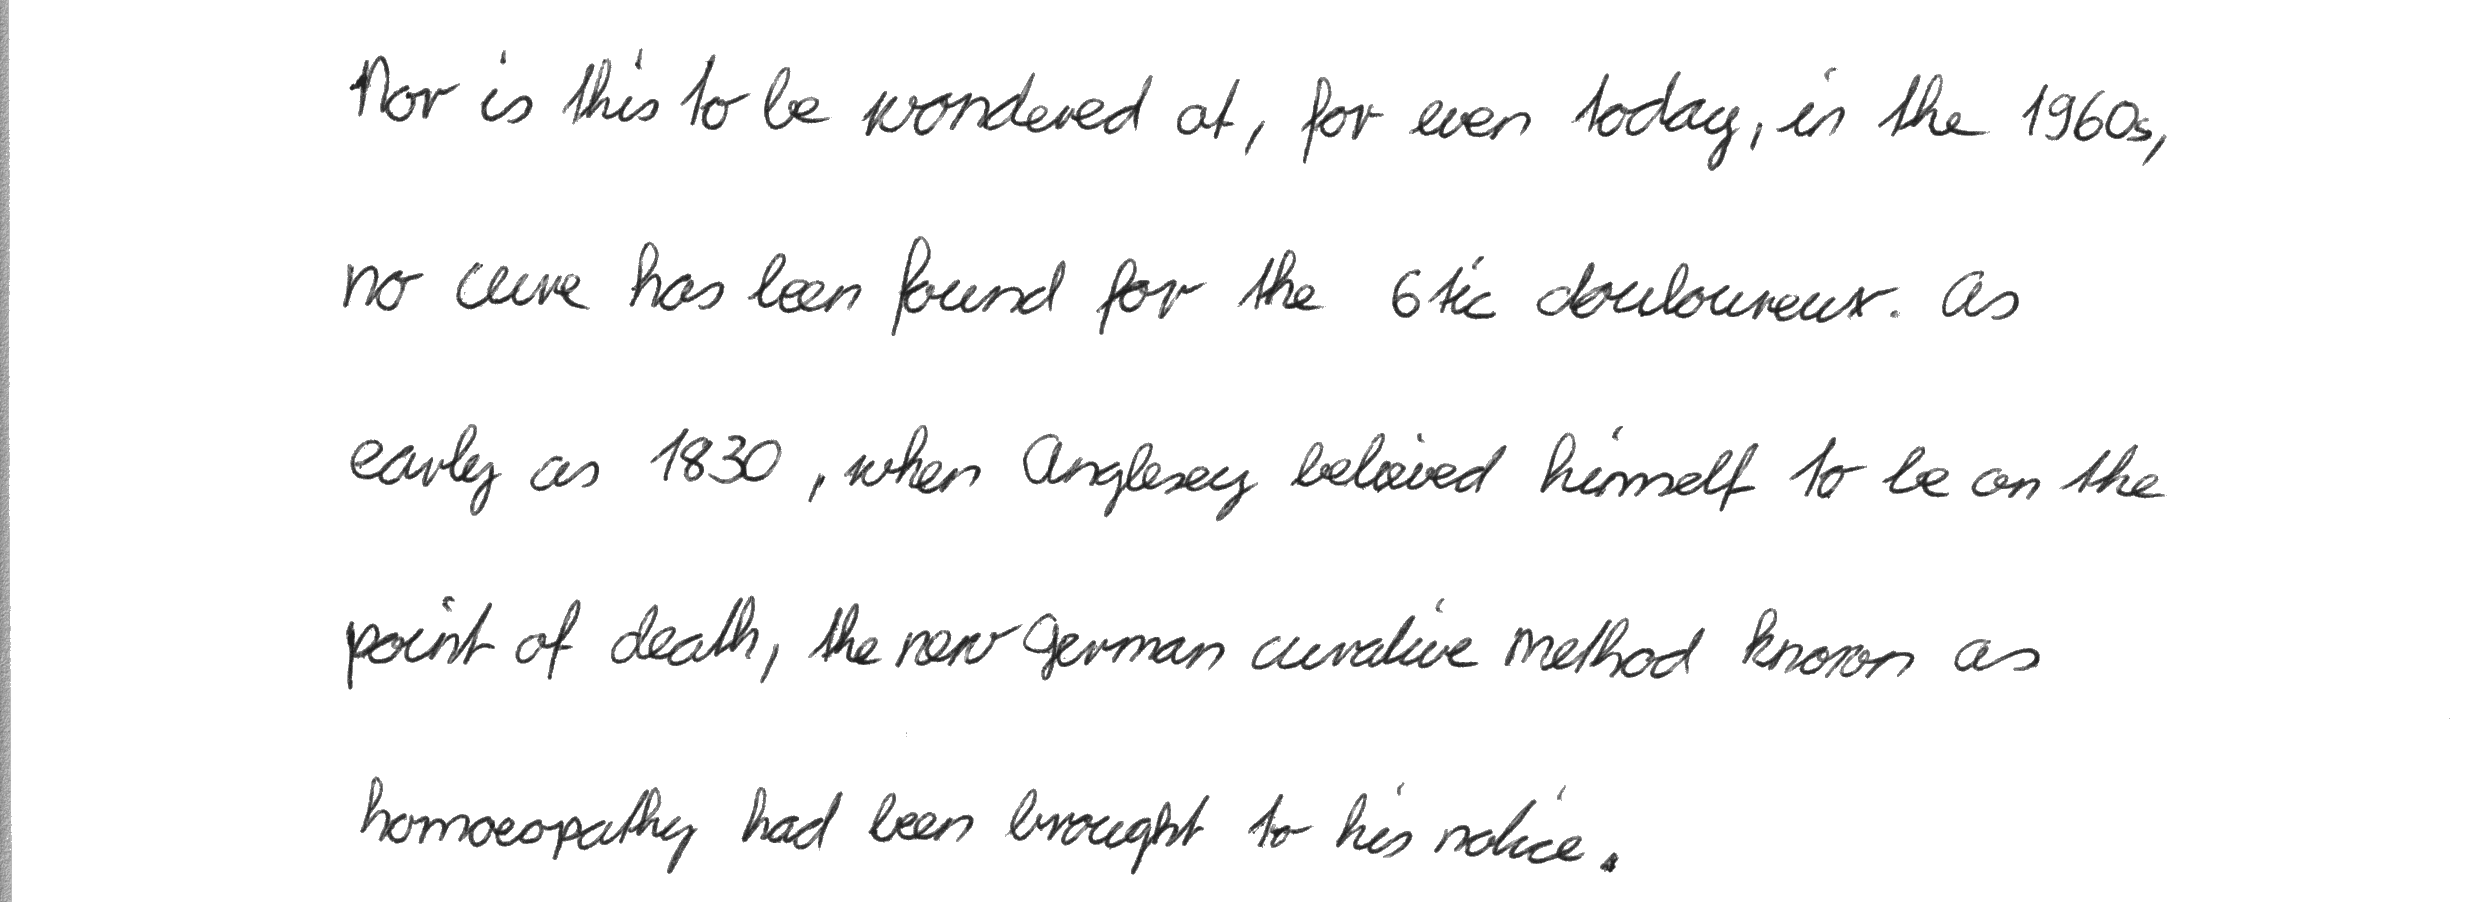 Nor is this to be wondered at, for even today, in the 1960s,
no cure has been found for the 6tic douloureux. As
early as 1830, when Anglesey believed himself to be on the
point of death, the new German curative method known as
homoeopathy had been brought to his notice.